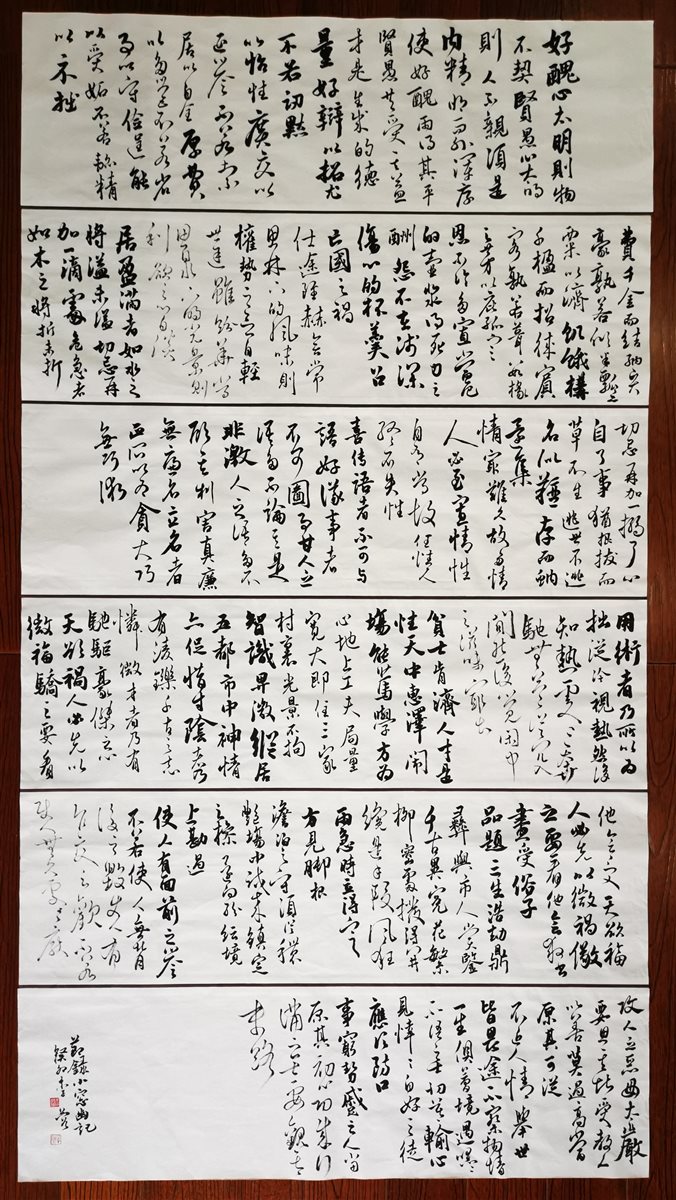 好醜心太明則物
不契賢愚心太明
則人不親須是
內精明而外渾厚
使好醜兩得其平
賢愚共受其益
才是生成的德
量 好辯以招尤
不若訒默
以怡性廣交以
延譽不若索
居以自全厚費
以多營不若省
事以守儉逞能
以受妬不若韜精
以示拙
費千金而結納賢
豪孰若傾半瓢之
粟以濟飢餓構
千楹而招徠賓
客孰若葺數椽
之茅以庇孤寒
恩不論多寡當厄
的壺漿得死力之
酬怨不在淺深
傷心的杯羹召
亡國之禍
仕途雖赫奕常
思林下的風味則
權勢之念自輕
世途雖紛華常
思泉下的光景則
利欲之心自淡
居盈滿者如水之
將溢未溢切忌再
加一滴處危急者
如木之將折未折
切忌再加一搦了心
自了事猶根拔而
草不生逃世不逃
名似羶存而蚋
還集
情最難久故多情
人必至寡情性
自有常故任性人
終不失性
喜傳語者不可與
語好議事者
不可圖事甘人之
語多不論其是
非激人之語多不
顧其利害真廉
無廉名立名者
正所以為貪大巧
無巧術
用術者乃所以為
拙從冷視熱然後
知熱處之奔
馳無益從冗入
閒然後覺閒中
之滋味最長
貧士肯濟人才是
性天中惠澤鬧
場能篤學方為
心地上工夫局量
寬大即住三家
村裏光景不拘
智識卑微縱居
五都市中神情
亦促惜寸陰者乃
有凌鑠千古之志
憐微才者乃有
馳驅豪傑之心
天欲禍人必先以
微福驕之要看
他會受天欲福
人必先以微禍儆
之要看他會救書
畫受俗子
品題三生浩劫鼎
彝與市人賞鑒
千古異冤花繁
柳密處撥得開
纔是手段風狂
雨急時立得定
方見腳根
澹泊之守須從穠
艷場中試來鎮定
之操還向紛紜境
上勘過
使人有面前之譽
不若使人無背
後之毀使人有
乍交之歡不若
使人無久處之厭
攻人之惡毋太嚴
要思其堪受教人
以善莫過高當
原其可從
不近人情舉世
皆畏途不察物情
一生俱夢境遇嘿
不語之士切莫輸心
見悻悻自好之徒
應須防口
事窮勢蹙之人當
原其初心功成行
滿之士要觀其
末路
節錄小窗幽記
癸卯冬